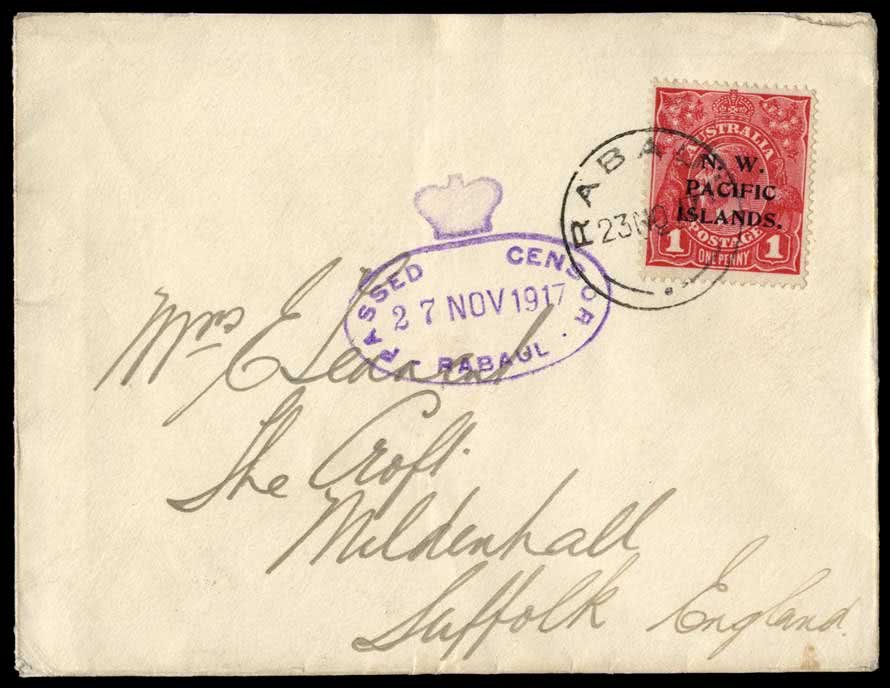 AUSTRALIA
N. W.
PACIFIC
ISLANDS.
POSTAGE
1 ONE PENNY 1
RABAUL
23 NO 17
PASSED CENSOR
27 NOV 1917
RABAUL
Mrs E
The Croft.
Mildenhall
Suffolk England.